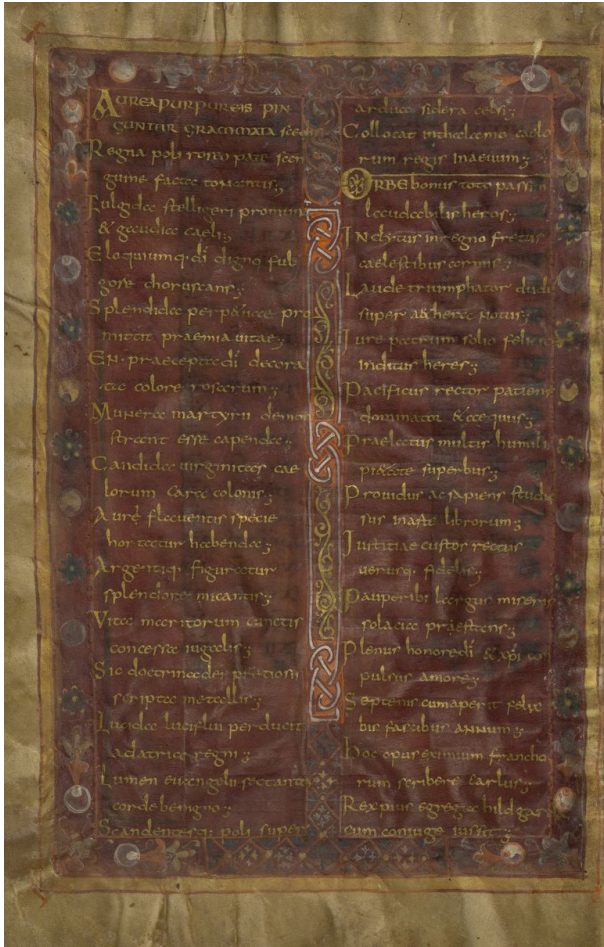 AUREA PURPUREIS PIN
GUNTUR GRAMMATA SCEDIS
Regna poli roseo pate
guine facta tonantis;
Fulgida stelligeri promunt
& gaudia caeli;
Eloquiumq· dī digno ful
gore choruscans;
Splendida perpaetuae pro
mittit praemia vitae;
EN praecepta dī decora
ta colore rosarum;
Munera martyrii demon
strant esse capenda;
Candida virginitas cae
lorum cara colonis;
Auri flaventis specie
hortatur habenda;
Argentiq; figuratur
splendore micantis;
Vita maritorum cunctis
concessa iugalis;
Sic doctrina dei pretiosis
scripta metallis;
Lucida lucif lui perducit
ad atria regni;
Lumen evangelii sectantes
corde benigno;
Scandentesq; poli super
ardua sidera celsi;
Collocat in thalamo caelo
rum regis in aevum;
ORBE bonus toto passim
laudabilis heros;
Inclytus in regno fretus
caelestibus armis;
Laude triumphator dudū
super aethera notus;
Jure patrum solio felicit
inditus heres;
Pacificus rector patiens
dominator & aequus;
Praelatus multis humili
pietate superbus;
Providus ac sapiens studio
sus in arte librorum;
Justitiae custos rectus
verusq· fidelis;
Pauperibꝰ largus miseris
solacia praestans;
Plenus honore dī & xpī co
pulsus amore;
Septenis cum aperit felix
bis fascibus annum;
Hoc opus eximium francho
rum scribere Carlus;
Rex pius egregia hildgar
cum coniuge iussit;